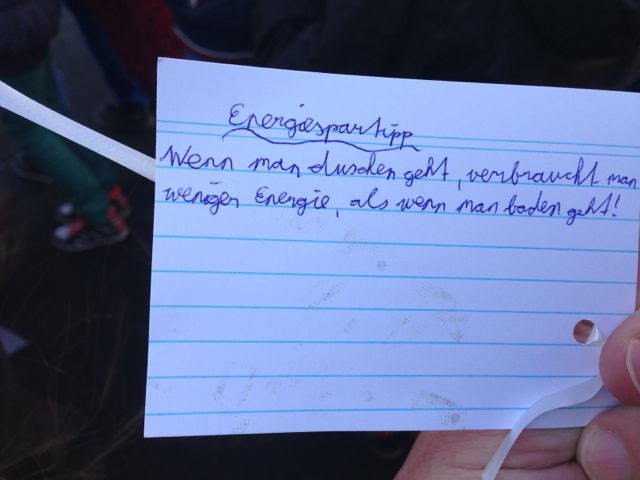 Energiespartipp
Wenn man duschen geht, verbraucht man
weniger Energie, als wenn man baden geht!